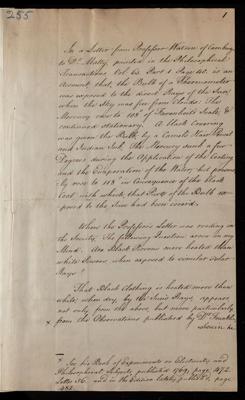 255
1
In a Letter from Professor Watson of Cambridge
to Dr. Matty, printed in the Philosophical
Transactions Vol. 63. Part 1. Page 40. is an
Account, that, the Bulb of a Thermometer
was exposed to the direct Rays of the Sun,
when the Sky was free from Clouds: The
Mercury rose to 108° of Farenheit's Scale, &
continued stationary. A black Covering
was given the Bulb, by a Camels Hair Pencil
and Indian Ink; The Mercury sunk a few
Degrees during the Application of the Coating
and the Evaporation of the Water, but presently
rose to 118° in Consequence of the black
Coat, with which that Part of the Bulb ex-
posed to the Sun had been covered.
When the Professor's Letter was reading in
the Society, The following Question arose in my
Mind. Are Black Persons more heated than
white Persons when exposed to similar Solar
Rays?
That Black Clothing is heated more than
white, when dry, by the Sun's Rays, appears
not only from the above, but more particularly
* from the Observations published by Dr. Franklin
* In his Book of Experiments on Electricity and
Philosophical Subjects, published 1769, page
Letter 56. and in the Edition lately published, page